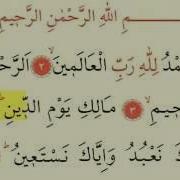 مِ اللهِ الرَّحْمٰنِ الرَّحِيمِ
مْدُ لِلّٰهِ رَبِّ الْعَالَمِينَ ﴿٢﴾ الرَّحْ
حِيمِ ﴿٣﴾ مَالِكِ يَوْمِ الدِّينِ
كَ نَعْبُدُ وَإِيَّاكَ نَسْتَعِينُ